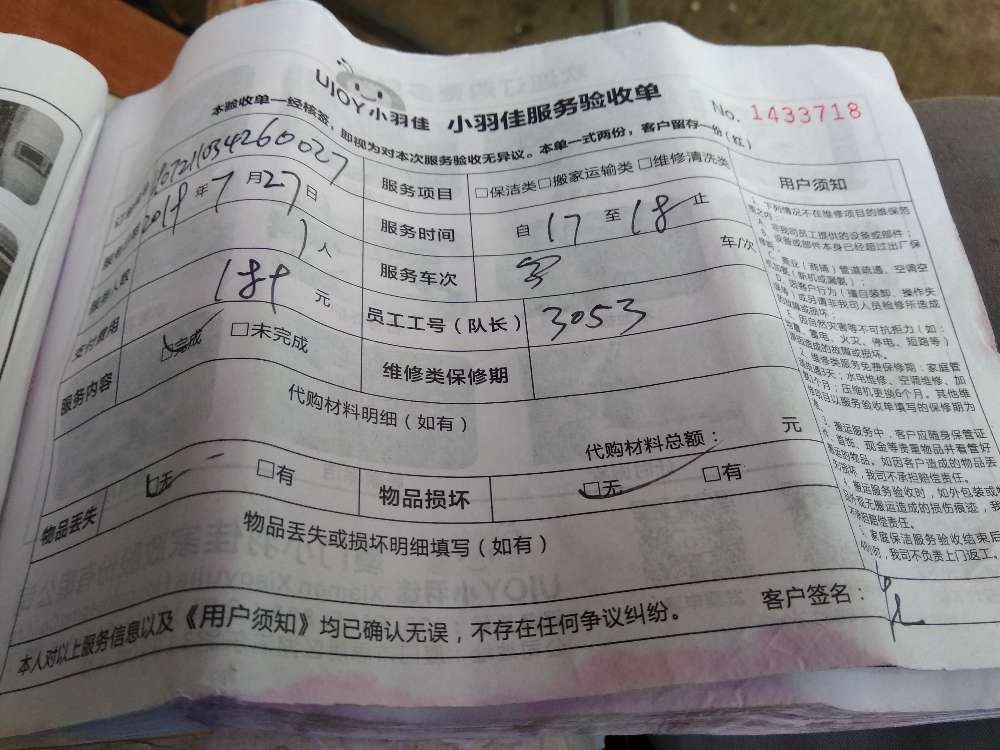 UJOY小羽佳 小羽佳服务验收单
No. 1433718
本验收单一经核签，即视为对本次服务验收无异议。本单一式两份，客户留存一份（红）
服务项目 □保洁类□搬家运输类□维修清洗类
年7月27日 服务时间 自17至18止
1人 服务车次 车/次
交付费用 元 员工工号（队长） 3053
服务内容 □完成 □未完成 维修类保修期
代购材料明细（如有）
代购材料总额： 元
物品丢失 □无 □有 物品损坏 □无 □有
物品丢失或损坏明细填写（如有）
本人对以上服务信息以及《用户须知》均已确认无误，不存在任何争议纠纷。 客户签名：
用户须知
1、下列情况不在维修项目的维保范
非我司员工提供的设备或部件；
设备或部件本身已经超过出厂保
商业（商铺）管道疏通、空调空
（新机或漏氟）；
因客户行为（擅自装卸、操作失
或另请非我司人员检修所造成
的故障或损坏；
因自然灾害等不可抗拒力（如：
雷电、火灾、停电、短路等）
造成的故障或损坏。
维修类服务免费保修期：家庭管
水电维修、空调维修、加
压缩机更换6个月。其他维
以服务验收单填写的保修期为
搬运服务中，客户应随身保管证
首饰、现金等贵重物品并看管好
搬运的物品。如因客户造成的物品丢
我司不承担赔偿责任。
搬运服务验收时，如外包装或
无搬运造成的损伤痕迹，我
不承担赔偿责任。
家庭保洁服务验收结束后
我司不负责上门返工。